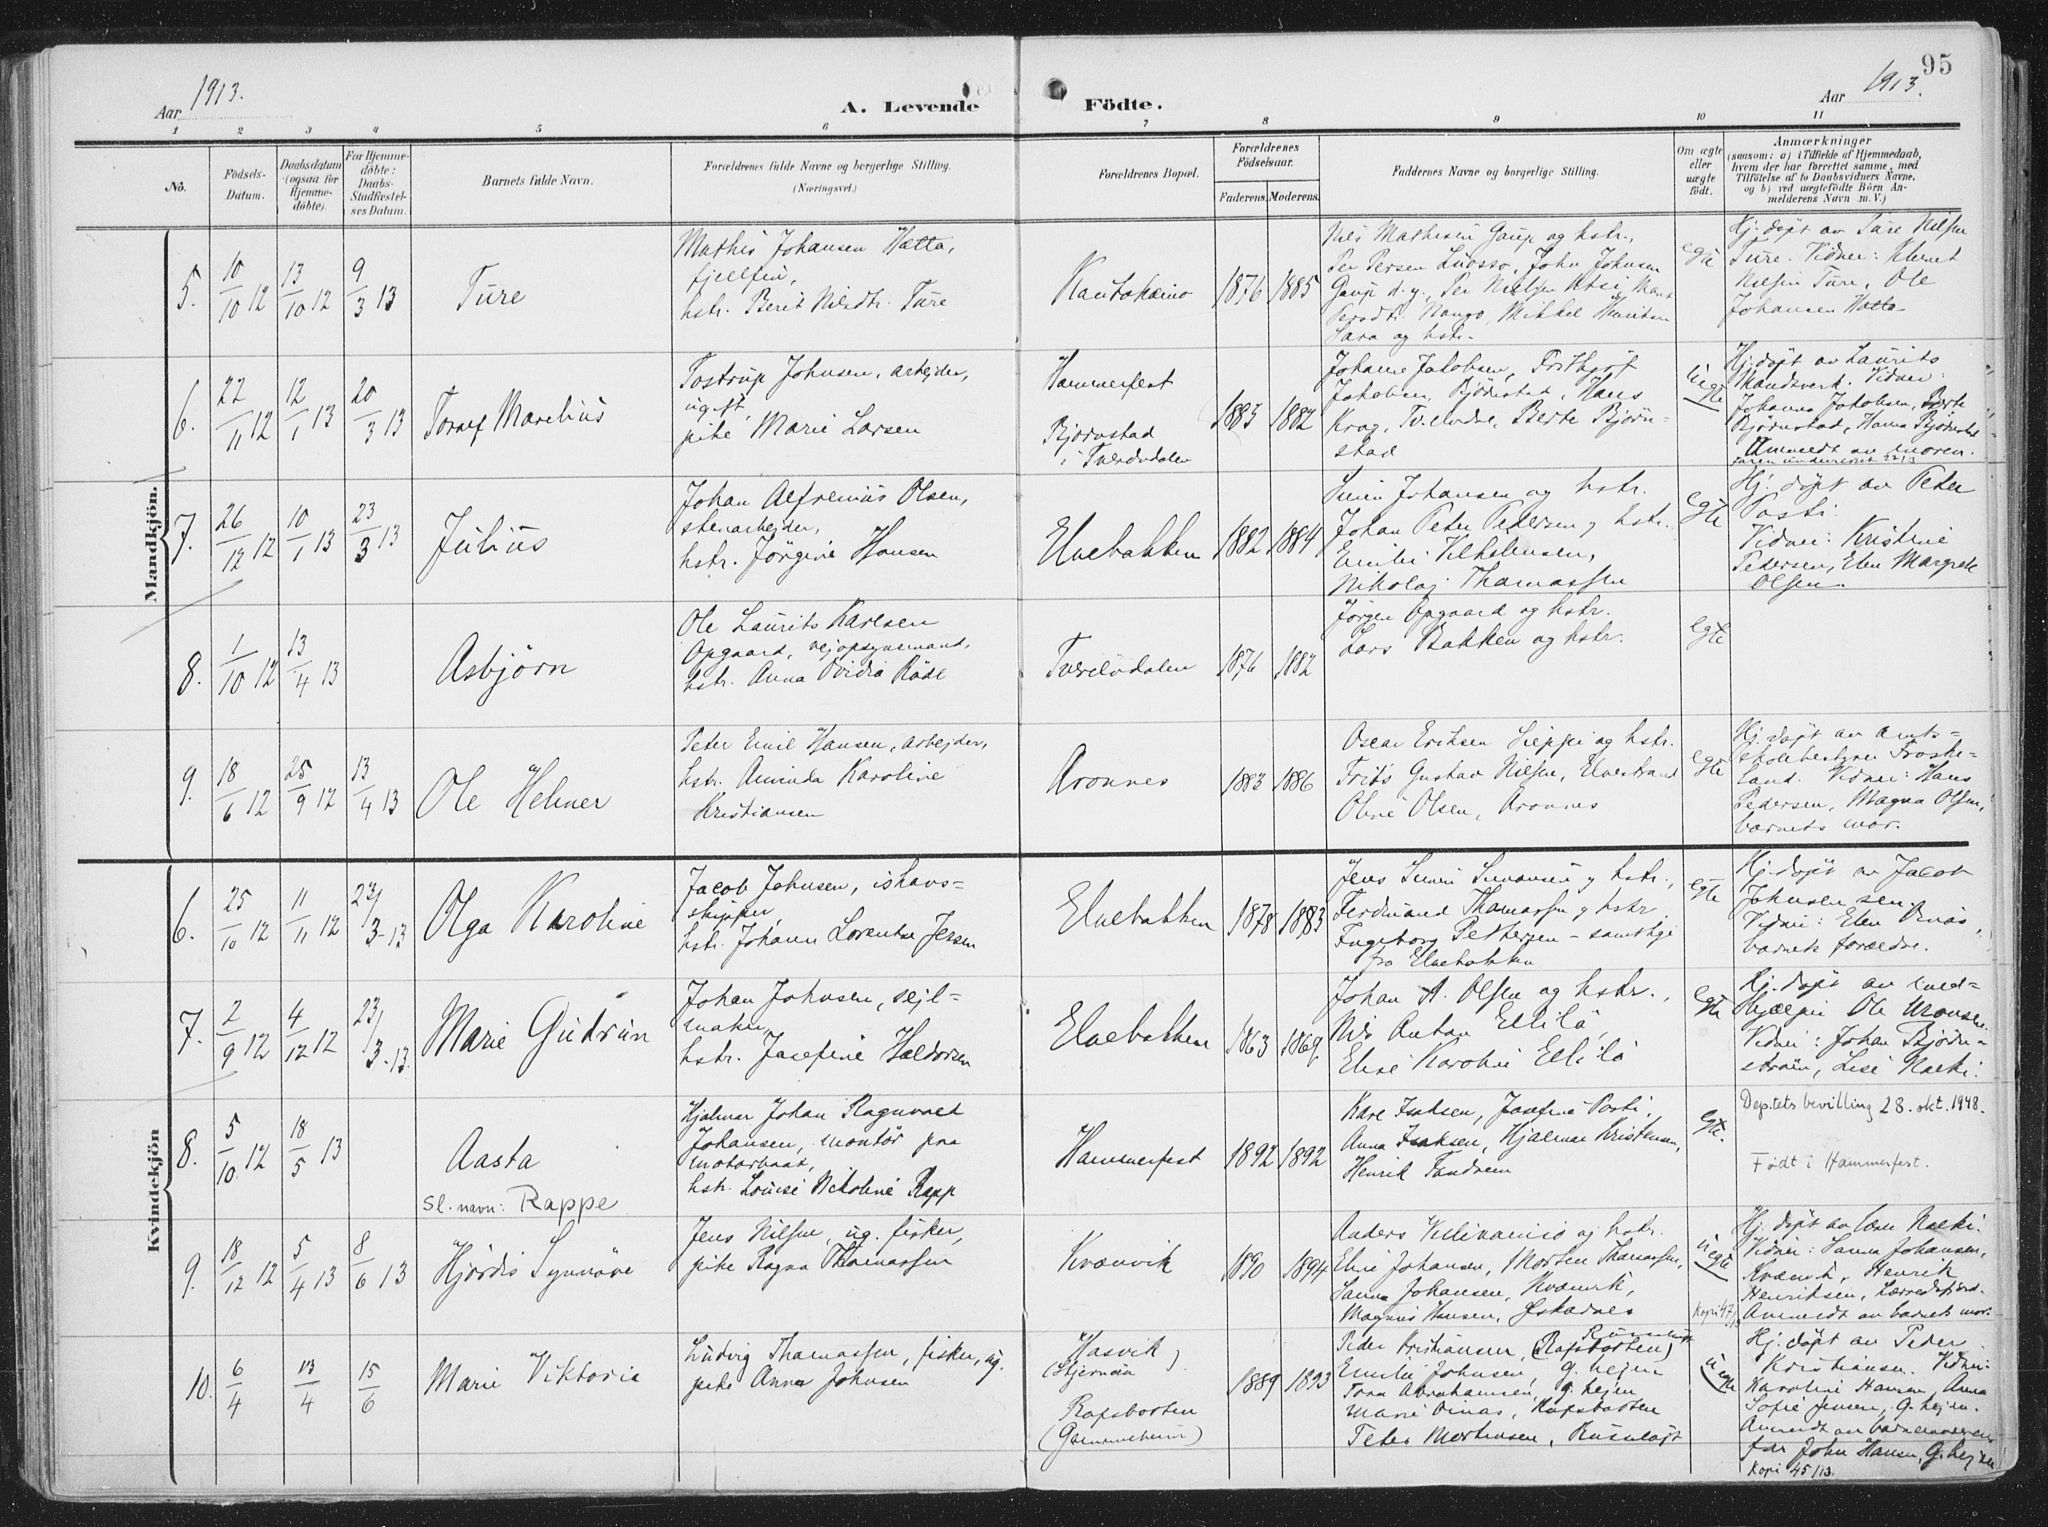 95
Aar 1913.
A. Levende Födte.
Aar 1913.
1 2 3 4 5 6 7 8 9 10 11
No.
Födsels-
Datum.
Daabsdatum
(ogsaa for
Hjemme-
döbte).
For Hjemme-
döbte:
Daabs-
Stadfæstel-
ses Datum.
Barnets fulde Navn.
Forældrenes fulde Navne og borgerlige Stilling.
(Næringsvei.)
Forældrenes Bopæl.
Forældrenes
Födselsaar.
Faderens. Moderens.
Faddernes Navne og borgerlige Stilling.
Om ægte
eller
uægte
födt.
Anmærkninger
(saasom: a) i Tilfælde af Hjemmedaab,
hvem der har forrettet samme, med
Tilföielse af to Daabsvidners Navne,
og b) ved uægtefödte Börn An-
melderens Navn m. V.)
Mandkjön.
5.
10/10 12
13/10 12
9/3 13
Ture
Mathis Johansen Hætta,
fjellfin,
hstr. Berit Nilsdtr. Ture
Kautokeino
1876 1885
Nils Mathisen Gaup og hstr.,
Per Persen Luosso, John Johnsen
Gaup d. y., Per Nielsen
Nango, Mikkel Henriksen
Sara og hstr.
egte
Hj. døpt av Ture Nilsen
Ture. Vidner: Klemet
Nilsen Ture, Ole
Johansen Hætta
6.
22/11 12
12/1 13
20/3 13
Toralf Marelius
Tostrup Johnsen, arbejder,
ugift,
pike Marie Larsen
Hammerfest
Bjørnstad
i Tverelvdalen
1885 1882
Johanne Jakobsen, Frithjof
Jakobsen, Bjørnstad, Hans
Krog, Tverelvdal, Berte Bjørn-
stad
uegte
Hj. døpt av Laurits
Mandsverk. Vidner:
Johanne Jakobsen, Berte
Bjørnstad, Hanna Bjørnstad
Anmeldt av moren.
7.
26/12 12
10/1 13
23/3 13
Julius
Johan Alfrenius Olsen,
stenarbejder,
hstr. Jørgine Hansen
Elvebakken
1882 1884
Simen Johansen og hstr.
Johan Peter Pedersen og hstr.
Emilie Vilhelmsen,
Nikolaj Thomassen
egte
Hj. døpt av Peter
Posti.
Vidner: Kristine
Pedersen, Elen Margrete
Olsen.
8.
1/10 12
13/4 13
Asbjørn
Ole Laurits Karlsen
Opgaard, vejopsynsmand,
hstr. Anna Ovidia Röde
Tverelvdalen
1876 1882
Jørgen Opgaard og hstr.
Lars Bakken og hstr.
egte
9.
18/6 12
25/9 12
13/4 13
Ole Helmer
Peter Emil Hansen, arbejder,
hstr. Aminda Karoline
Kristiansen
Aronnes
1883 1886
Oscar Eriksen Sieppi og hstr.
Frits Gustav Nilsen, Elvestrand
Oline Olsen, Aronnes
egte
Hj. døpt av amts-
skolebestyrer Froste-
land. Vidner: Hans
Pedersen, Magna Olsen,
barnets mor.
Kvindekjön
6.
25/10 12
11/11 12
23/3-13
Olga Karoline
Jacob Johnsen, ishavs-
skipper,
hstr. Johanne Lorentse Jensen
Elvebakken
1878 1883
Jens Simon Simonsen og hstr.,
Ferdinand Thomassen og hstr.
Ingeborg Pettersen - samtlige
fra Elvebakken
egte
Hj. døpt av Jacob
Johnsen sen.
Vidner: Elen Binas,
barnets forældre.
7.
2/9 12
4/12 12
23/3-13
Marie Gudrun
Johan Johnsen, sejl-
maker,
hstr. Josefine Haldorsen
Elvebakken
1863 1869
Johan A. Olsen og hstr.,
Nils Anton Ellilä,
Elise Karoline Ellilä
egte
Hj. døpt av med-
hjælper Ole Aronsen.
Vidner: Johan Bjørn-
strøm, Lise Nalki.
8.
5/10 12
18/5 13
Aasta
Sl. navn: Rappe
Hjalmar Johan Ragnvald
Johansen, montør paa
motorbaat,
hstr. Louise Nikoline Rapp
Hammerfest
1892 1892
Kare Isaksen, Josefine Posti,
Anna Isaksen, Hjalmar Kristensen,
Henrik Tandrem
egte.
Dep.tets bevilling 28. okt. 1948.
Født i Hammerfest.
9.
18/12 12
5/4 13
8/6 13
Hjördis Synnöve
Jens Nilsen, ug. fisker,
pike Ragna Thomassen
Kvænvik
1890 1894
Anders Vilivainio og hstr.
Elise Johansen, Morten Thomassen,
Sanna Johansen, Kvænvik,
Magnus Hansen, Øskarnes
uegte
Kopi 47/13
Hj. døpt av Lars Nalki.
Vidner: Sanna Johansen,
Kvænvik, Henrik
Henriksen, Lærredsfjord.
Anmeldt av barnets mor.
10.
6/4
13/4
15/6
Marie Viktoria
Ludvig Thomassen, fisker, ug.
pike Anna Johnsen
Hasvik
(Stjernøen)
Rafsbotten
(Gammelheim)
1889 1893
Peder Kristiansen, (Rafsbotten)
Emilie Johnsen, g. hejen
Tora Abrahamsen, g. hejen
Marie Binas, Rafsbotten
Peter Mortensen, Russeluft
uegte
Hj. døpt av Peder
Kristiansen. Vidner:
Karoline Hansen, Anna
Sofie Jensen, G. hejen.
Anmeldt av barnemoderens
far John Hansen, G. hejen
Kopi 45/13.